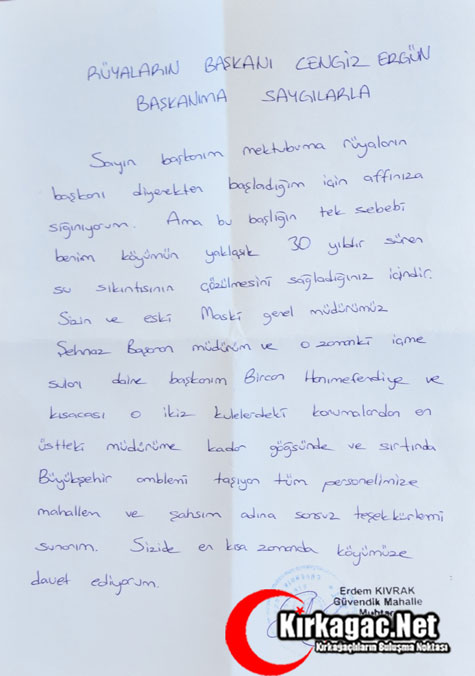 RÜYALARIN BAŞKANI CENGİZ ERGÜN
BAŞKANIMA SAYGILARLA
Sayın başkanım mektubuma rüyaların
başkanı diyerekten başladığım için affınıza
sığınıyorum. Ama bu başlığın tek sebebi
benim köyümün yaklaşık 30 yıldır süren
su sıkıntısının çözülmesini sağladığınız içindir.
Sizin ve eski Maski genel müdürümüz
Şehnaz Başaran müdürüm ve o zamanki içme
suları daire başkanım Bircan Hanımefendiye ve
kısacası o ikiz kulelerdeki korumalardan en
üstteki müdürüme kadar göğsünde ve sırtında
Büyükşehir amblemi taşıyan tüm personelimize
mahallem ve şahsım adına sonsuz teşekkürlerimi
sunarım. Sizide en kısa zamanda köyümüze
davet ediyorum.
Erdem KIVRAK
Güvendik Mahalle
Kırkagac.Net
Kırkağaçlıların Buluşma Noktası